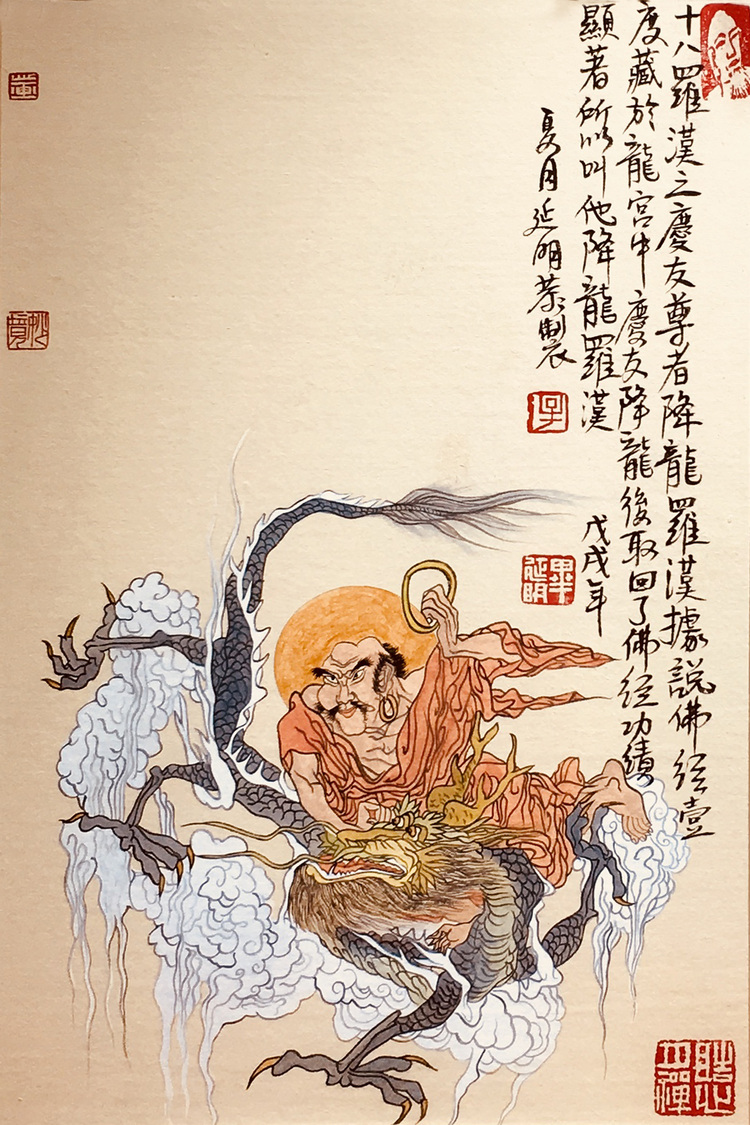 十八羅漢之慶友尊者降龍羅漢據說佛經壹
度藏於龍宮中慶友降龍後取回了佛經功績
顯著所以叫他降龍羅漢
戊戌年
夏月延明恭製